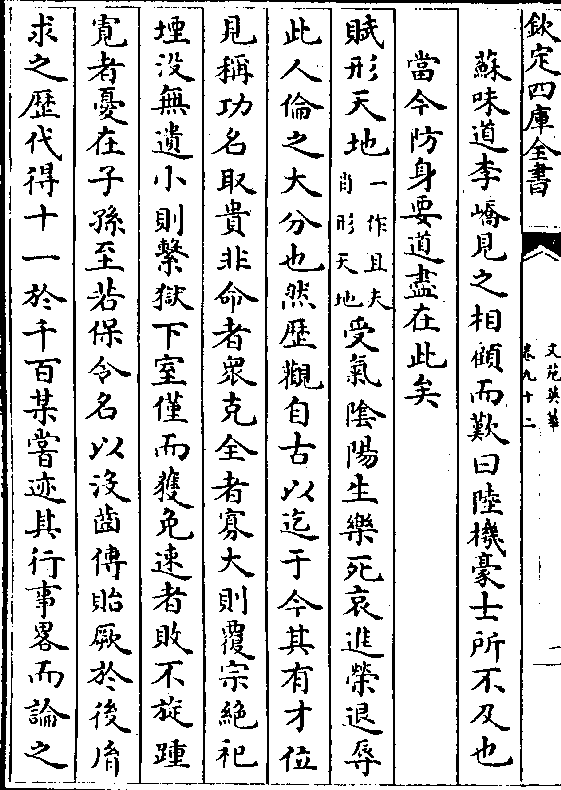 欽定四庫全書
文苑英華
卷九十二
二
蘇味道李嶠見之相顧而歎曰陸機豪士所不及也
當今防身要道盡在此矣
賦形天地一作且夫肖形天地受氣隂陽生樂死哀進榮退辱
此人倫之大分也然歴觀自古以迄于今其有才位
見稱功名取貴非命者衆克全者寡大則覆宗絶祀
堙没無遺小則繫獄下室僅而獲免速者敗不旋踵
寛者憂在子孫至若保令名以没齒傳貽厥於後㣧
求之歴代得十一於千百某嘗迹其行事畧而論之